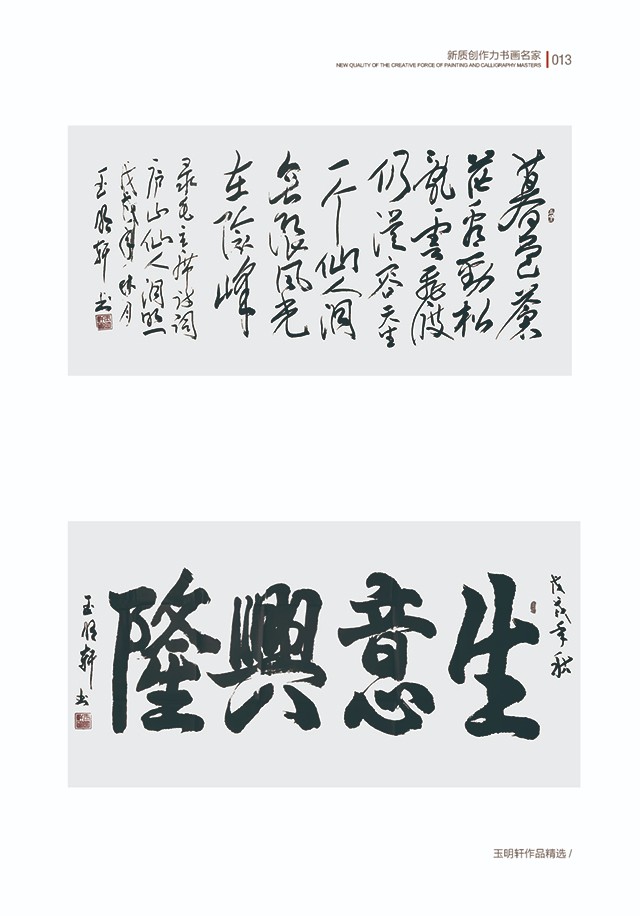 新质创作力书画名家
NEW QUALITY OF THE CREATIVE FORCE OF PAINTING AND CALLIGRAPHY MASTERS
013
暮色蒼
茫看勁松
亂雲飛渡
仍從容天生
一个仙人洞
無限風光
在險峰
录毛主席诗词
庐山仙人洞照一
戊戌年秋月
玉明轩书
戊戌年秋
生意興隆
玉明轩书
玉明轩作品精选 /